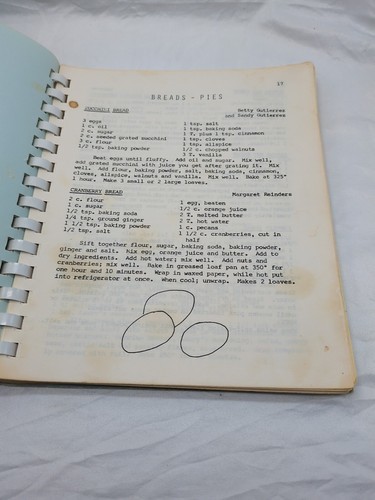 19
BREADS - PIES
ZUCCHINI BREAD
Betty Gutierres
and Sandy Gutierres
3 eggs
1 c. oil
2 c. sugar
2 c. seeded grated zucchini
3 c. flour
1/2 tsp. baking powder
1 tsp. salt
1 tsp. baking soda
1 T. plus 1 tsp. cinnamon
1 tsp. cloves
1 tsp. allspice
1/2 c. chopped walnuts
3 T. vanilla
Beat eggs until fluffy. Add oil and sugar. Mix well,
add grated zucchini with juice you get after grating it. Mix
well. Add flour, baking powder, salt, baking soda, cinnamon,
cloves, allspice, walnuts and vanilla. Mix well. Bake at 325°
1 hour. Makes 3 small or 2 large loaves.
CRANBERRY BREAD
Margaret Reinders
2 c. flour
1 c. sugar
1/2 tsp. baking soda
1/4 tsp. ground ginger
1 1/2 tsp. baking powder
1/2 tsp. salt
1 egg, beaten
1/2 c. orange juice
2 T. melted butter
2 T. hot water
1 c. pecans
1 1/2 c. cranberries, cut in
half
Sift together flour, sugar, baking soda, baking powder,
ginger and salt. Mix egg, orange juice and butter. Add to
dry ingredients. Add hot water; mix well. Add nuts and
cranberries; mix well. Bake in greased loaf pan at 350° for
one hour and 10 minutes. Wrap in waxed paper, while hot put
into refrigerator at once. When cool; unwrap. Makes 2 loaves.